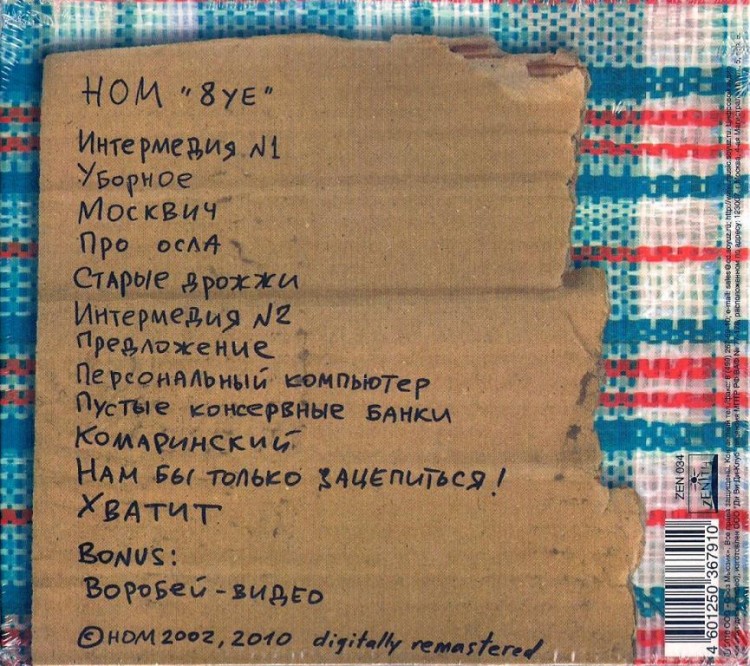 НОМ "8УЕ"
Интермедия N1
Уборное
Москвич
Про осла
Старые дрожжи
Интермедия N2
Предложение
Персональный компьютер
Пустые консервные банки
Комаринский
Нам бы только зацепиться!
Хватит
BONUS:
Воробей-видео
©НОМ 2002, 2010 digitally remastered
ZEN 034
ZENITH
4 601250 367910